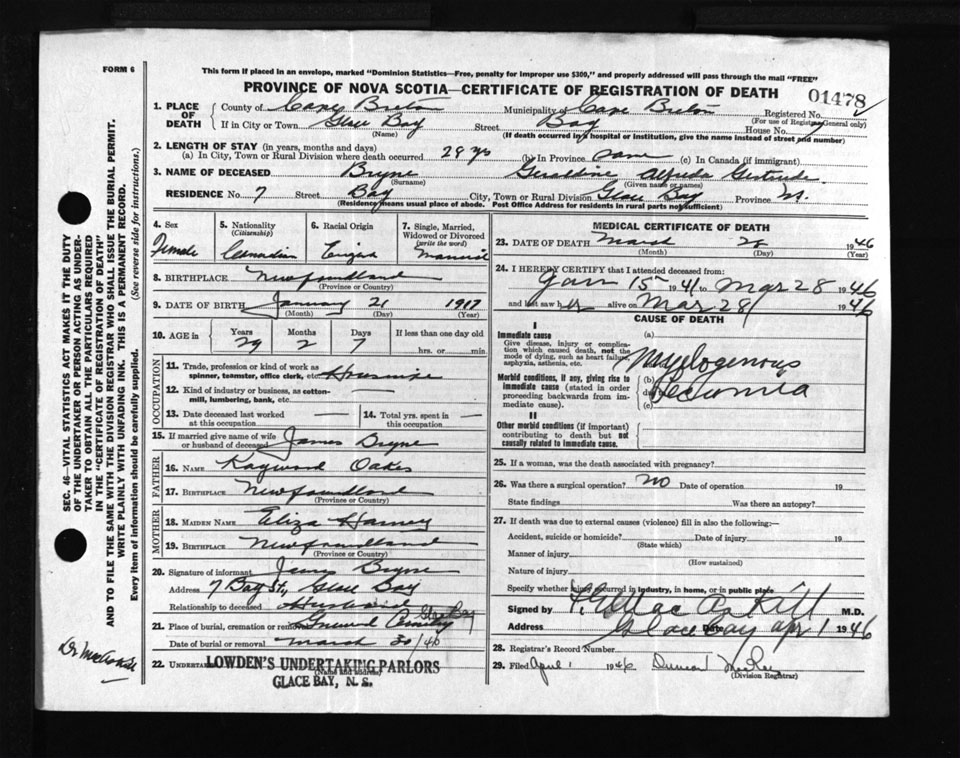 FORM 6
This form if placed in an envelope, marked "Dominion Statistics—Free, penalty for improper use $300," and properly addressed will pass through the mail "FREE"
PROVINCE OF NOVA SCOTIA—CERTIFICATE OF REGISTRATION OF DEATH
01478
1. PLACE OF DEATH
County of Cape Breton Municipality of Cape Breton Registered No.
(For use of Registrar General only)
If in City or Town Glace Bay Street Bay House No. 7
(Name) (If death occurred in hospital or institution, give the name instead of street and number)
2. LENGTH OF STAY (in years, months and days)
(a) In City, Town or Rural Division where death occurred 29 yrs (b) In Province same (c) In Canada (if immigrant)
3. NAME OF DECEASED Bryne Geraldine Alfreda Gertrude
(Surname) (Given name or names)
RESIDENCE No. 7 Street Bay City, Town or Rural Division Glace Bay Province
(Residence means usual place of abode. Post Office Address for residents in rural parts not sufficient)
4. Sex
Female
5. Nationality
(Citizenship)
Canadian
6. Racial Origin
English
7. Single, Married, Widowed or Divorced
(write the word)
Married
8. BIRTHPLACE Newfoundland
(Province or Country)
9. DATE OF BIRTH January 21 1917
(Month) (Day) (Year)
10. AGE in Years Months Days If less than one day old
29 2 7 hrs. or min.
OCCUPATION
11. Trade, profession or kind of work as spinner, teamster, office clerk, etc. Housewife
12. Kind of industry or business, as cotton mill, lumbering, bank, etc.
13. Date deceased last worked at this occupation
14. Total yrs. spent in this occupation
15. If married give name of wife or husband of deceased James Bryne
FATHER
16. NAME Raywood Oakes
17. BIRTHPLACE Newfoundland
(Province or Country)
MOTHER
18. MAIDEN NAME Eliza
19. BIRTHPLACE Newfoundland
(Province or Country)
20. Signature of informant James Bryne
Address 7 Bay St., Glace Bay
Relationship to deceased Husband
21. Place of burial, cremation or removal Greenwood Cemetery Glace Bay
Date of burial or removal March 30/46
22. UNDERTAKER LOWDEN'S UNDERTAKING PARLORS
(Name and address)
GLACE BAY, N. S.
MEDICAL CERTIFICATE OF DEATH
23. DATE OF DEATH March 28 1946
(Month) (Day) (Year)
24. I HEREBY CERTIFY that I attended deceased from:
Jan 15 1941 to Mar 28 1946
and last saw her alive on Mar 28 1946
CAUSE OF DEATH
I
Immediate cause
Give disease, injury or complication which caused death, not the mode of dying, such as heart failure, asphyxia, asthenia, etc.
(a) Myelogenous
Morbid conditions, if any, giving rise to immediate cause (stated in order proceeding backwards from immediate cause).
(b) Leukemia
(c)
II
Other morbid conditions (if important) contributing to death but not causally related to immediate cause.
25. If a woman, was the death associated with pregnancy?
26. Was there a surgical operation? No Date of operation 19
State findings Was there an autopsy?
27. If death was due to external causes (violence) fill in also the following:—
Accident, suicide or homicide? Date of injury 19
(State which)
Manner of injury
(How sustained)
Nature of injury
Specify whether injury occurred in industry, in home, or in public place
Signed by MacAskill M.D.
Address Glace Bay Date Apr 1 1946
28. Registrar's Record Number
29. Filed April 1 1946 Duncan
(Division Registrar)
SEC. 46—VITAL STATISTICS ACT MAKES IT THE DUTY
OF THE UNDERTAKER OR PERSON ACTING AS UNDERTAKER TO OBTAIN ALL THE PARTICULARS REQUIRED
IN THE "CERTIFICATE OF REGISTRATION OF DEATH"
AND TO FILE THE SAME WITH THE DIVISION REGISTRAR WHO SHALL ISSUE THE BURIAL PERMIT.
WRITE PLAINLY WITH UNFADING INK. THIS IS A PERMANENT RECORD.
Every item of information should be carefully supplied. (See reverse side for instructions.)